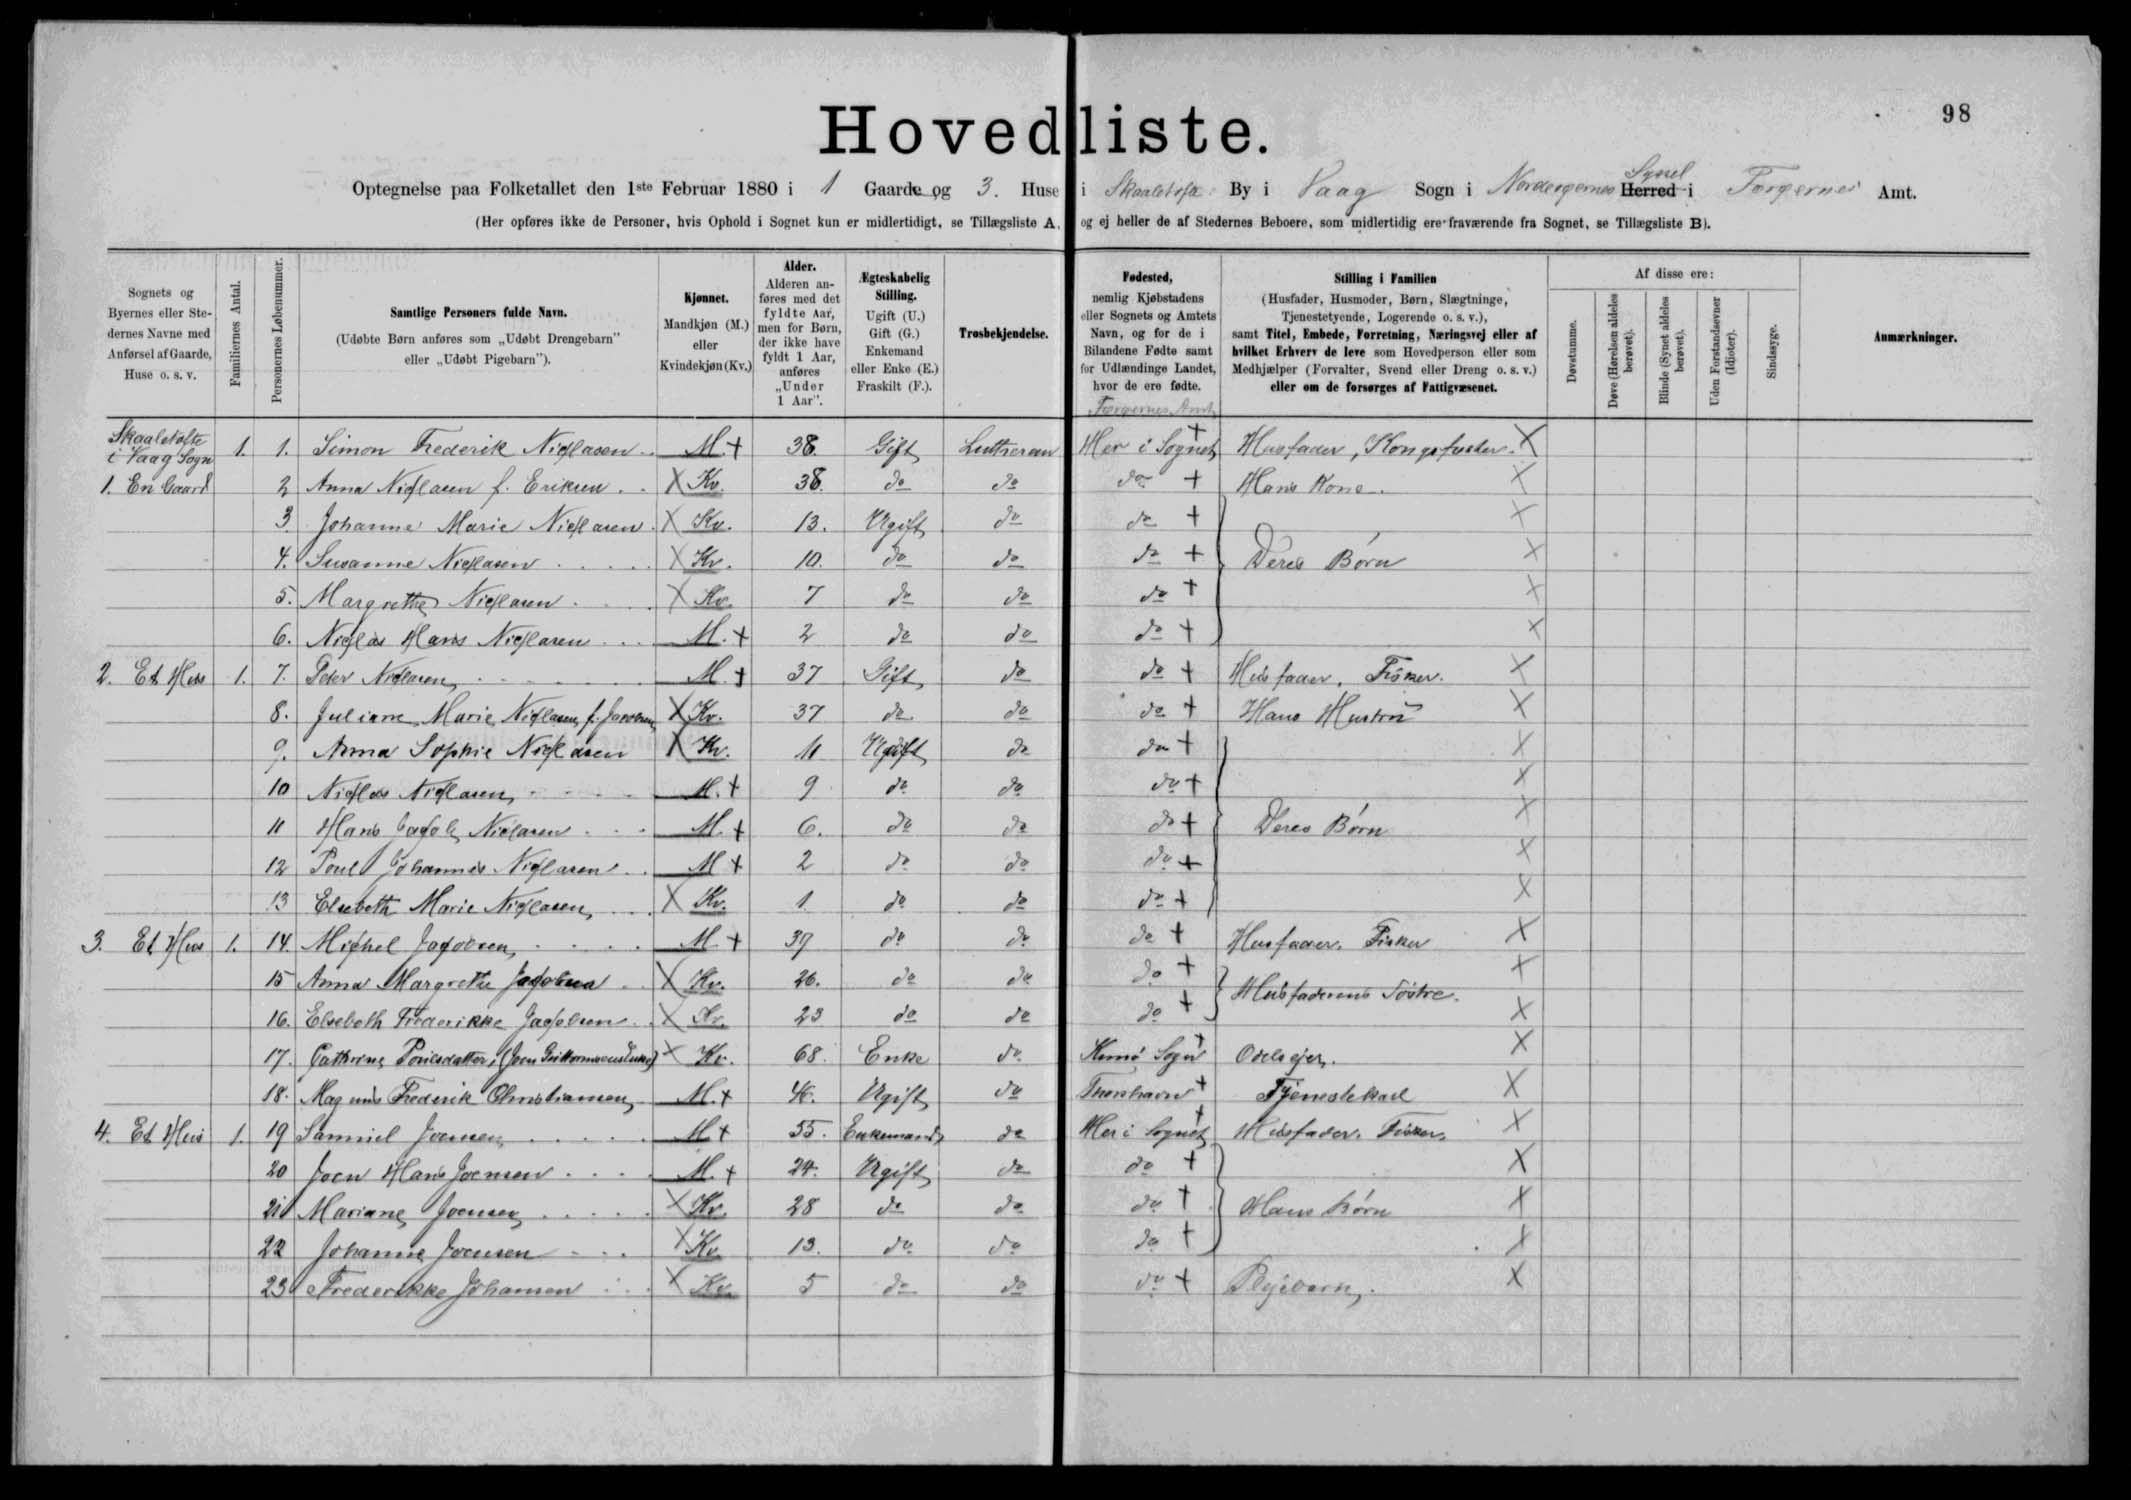 98
Hovedliste.
Optegnelse paa Folketallet den 1ste Februar 1880 i 1 Gaarde og 3. Huse i Skaaletofte By i Vaag Sogn i Norderøernes Herred Syssel i Færøernes Amt.
(Her opføres ikke de Personer, hvis Ophold i Sognet kun er midlertidigt, se Tillægsliste A, og ej heller de af Stedernes Beboere, som midlertidig ere fraværende fra Sognet, se Tillægsliste B).
Sognets og Byernes eller Stedernes Navne med Anførsel af Gaarde, Huse o. s. v.
Familiernes Antal.
Personernes Løbenummer.
Samtlige Personers fulde Navn. (Udøbte Børn anføres som „Udøbt Drengebarn" eller „Udøbt Pigebarn").
Kjønnet. Mandkjøn (M.) eller Kvindekjøn (Kv.)
Alder. Alderen anføres med det fyldte Aar, men for Børn, der ikke have fyldt 1 Aar, anføres „Under 1 Aar".
Ægteskabelig Stilling. Ugift (U.) Gift (G.) Enkemand eller Enke (E.) Fraskilt (F.).
Trosbekjendelse.
Fødested, nemlig Kjøbstadens eller Sognets og Amtets Navn, og for de i Bilandene Fødte samt for Udlændinge Landet, hvor de ere fødte.
Stilling i Familien (Husfader, Husmoder, Børn, Slægtninge, Tjenestetyende, Logerende o. s. v.), samt Titel, Embede, Forretning, Næringsvej eller af hvilket Erhverv de leve som Hovedperson eller som Medhjælper (Forvalter, Svend eller Dreng o. s. v.) eller om de forsørges af Fattigvæsenet.
Af disse ere:
Døvstumme.
Døve (Hørelsen aldeles berøvet).
Blinde (Synet aldeles berøvet).
Uden Forstandsevner (Idioter).
Sindssyge.
Anmærkninger.
Færøernes Amt
Skaaletofte i Vaag Sogn 1. 1. Simon Frederik Niclasen M. + 38. Gift Lutheran Her i Sognet + Husfader, Kongsfæster. X
1. En Gaard 2 Anna Niclasen f. Eriksen X Kv. 38. do do do + Hans Kone. X
3 Johanne Marie Niclasen X Kv. 13. Ugift do do + X
4. Susanne Niclasen X Kv. 10. do do do + Deres Børn X
5. Margrethe Niclasen X Kv. 7 do do do + X
6. Niclas Hans Niclasen M. + 2 do do do + X
2. Et Hus 1. 7. Peter Niclasen M. + 37 Gift do do + Husfader. Fisker. X
8. Juliane Marie Niclasen f. Jacobsen X Kv. 37 do do do + Hans Hustru X
9. Anna Sophie Niclasen X Kv. 11 Ugift do do + X
10 Niclas Niclasen M. + 9 do do do + X
11 Hans Jacob Niclasen M. + 6. do do do + Deres Børn X
12 Poul Johannes Niclasen M + 2 do do do + X
13 Elsebeth Marie Niclasen X Kv. 1 do do do + X
3. Et Hus 1. 14. Michel Jacobsen M + 39 do do do + Husfader. Fisker X
15 Anna Margrethe Jacobsen X Kv. 26. do do do + X
Husfaderens Søstre.
16. Elsebeth Frederikke Jacobsen X Kv. 23 do do do + X
17. Cathrine Poulsdatter, (Joen Guttormsens Enke) X Kv. 68. Enke do Kunø Sogn + Odelsejer. X
18. Magnus Frederik Christiansen M. + 46. Ugift do Thorshavn + Tjenestekarl X
4. Et Hus 1. 19 Samuel Joensen M + 55. Enkemand do Her i Sognet + Husfader. Fisker. X
20 Joen Hans Joensen M. + 24. Ugift do do + X
21 Mariane Joensen X Kv. 28 do do do + Hans Børn X
22 Johanne Joensen X Kv. 13. do do do + X
23 Frederikke Johansen X Kv. 5 do do do + Plejebarn. X